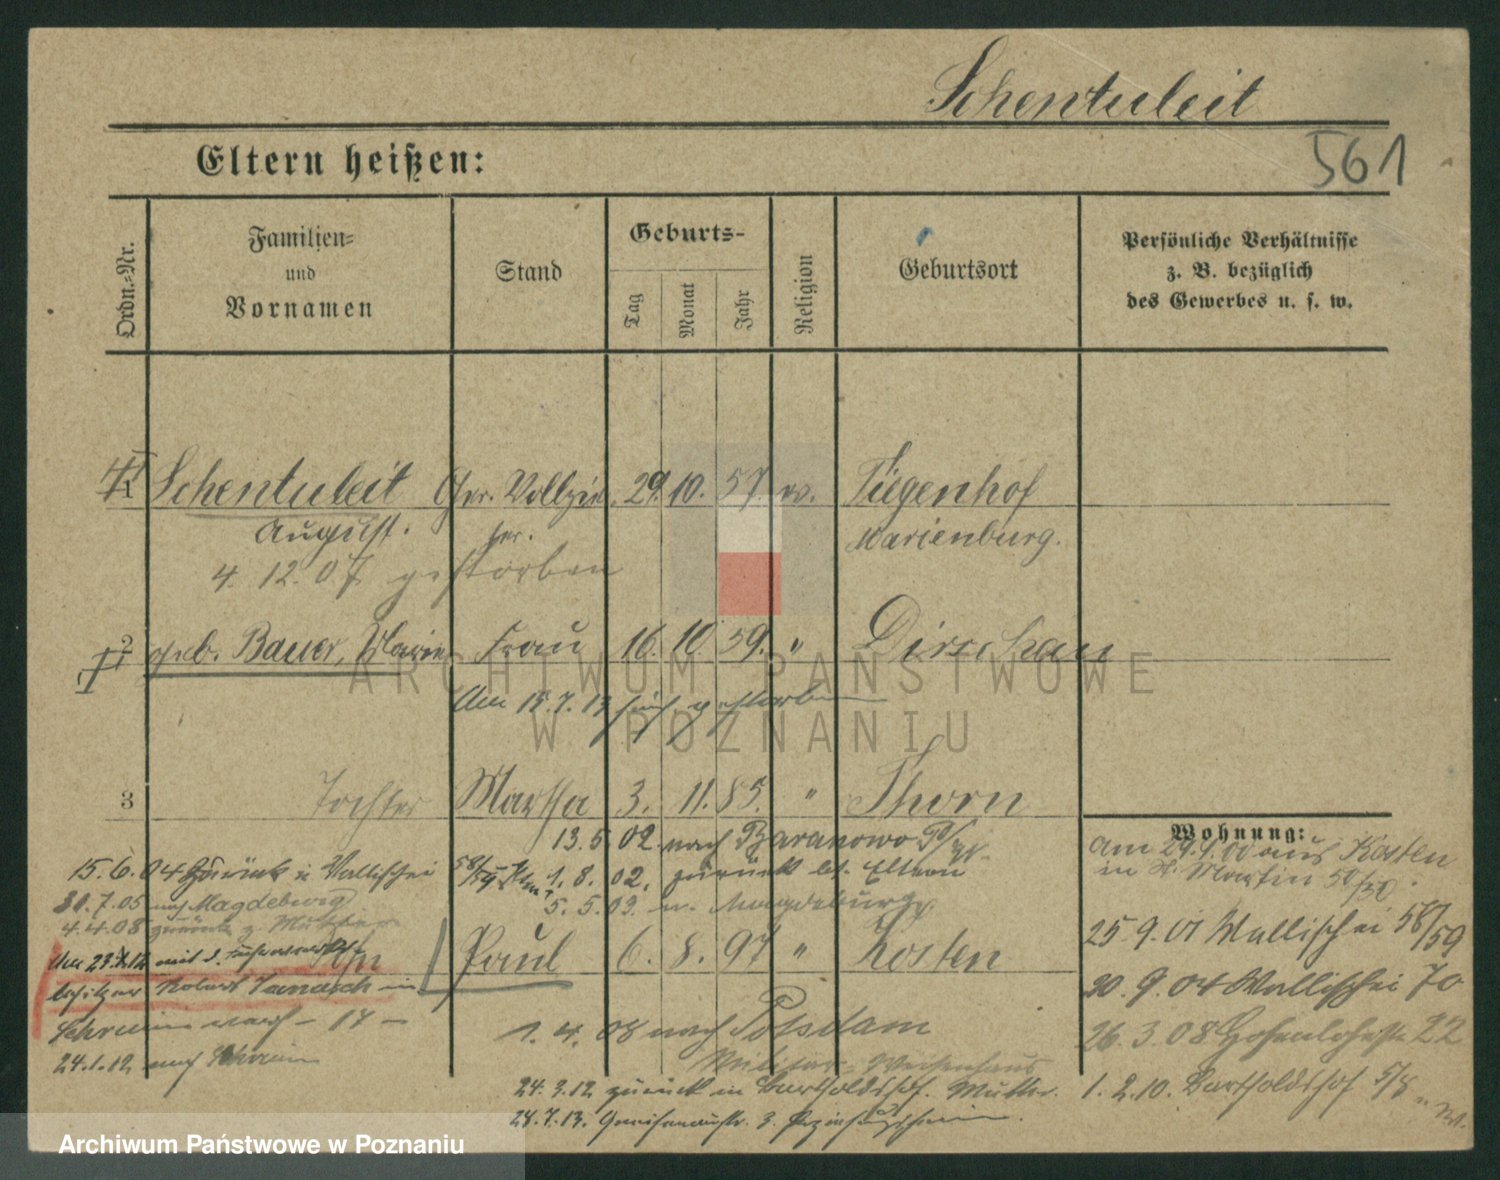 Schentuleit
561
Eltern heißen:
Ordn.-Nr.
Familien- und Vornamen
Stand
Geburts-
Tag
Monat
Jahr
Religion
Geburtsort
Persönliche Verhältnisse
z. B. bezüglich
des Gewerbes u. s. w.
1 Schentuleit Ger. Vollzie 29. 10. 57. ev. Tiegenhof
August. her. Marienburg.
4. 12. 07 gestorben
2 geb. Bauer, Marie Frau 16. 10 59. " Dirschau
Am 15. 7. 13 hier gestorben
3 Tochter Martha 3. 11. 85. " Thorn
Wohnung:
13. 5. 02. nach Baranowo
am 29.1.00 aus Kosten
15. 6. 04 zurück Wallischei 58/59 1. 8. 02. zurück bei Eltern
in St. Martin
30. 7. 05 nach Magdeburg
5. 5. 03. n. Magdeburg
4. 4. 08 zurück z. Mutter
25. 9. 01 Wallischei 58/59
Paul 6. 8. 97 " Kosten
Robert
20. 9. 04 Wallischei 70
Schrimm
1. 4. 08 nach Potsdam
26. 3. 08 Hohenlohestr. 22
24. 1. 12 nach Schrimm
Militär-Waisenhaus
24. 3. 12 zurück in Bartholdshof. Mutter.
1. 2. 10. Bartholdshof 5/8
24. 7. 13.
ARCHIWUM PAŃSTWOWE
W POZNANIU
Archiwum Państwowe w Poznaniu